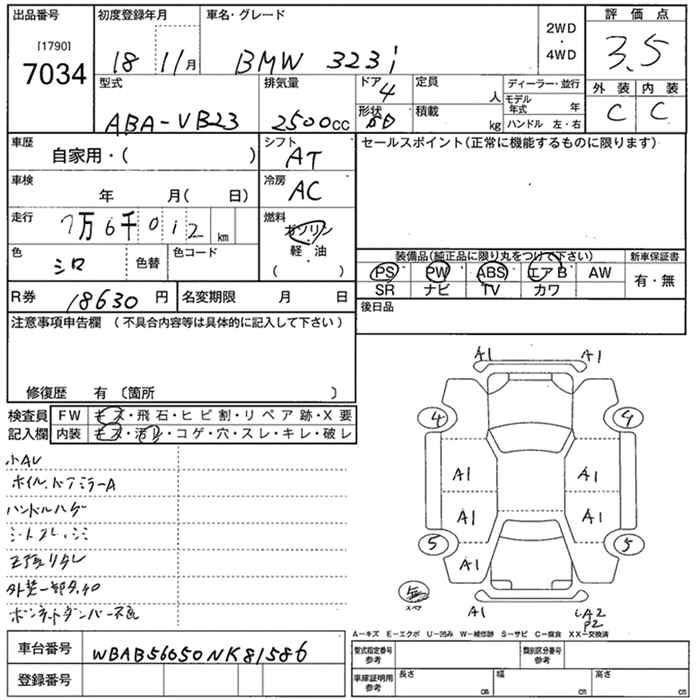 出品番号 初度登録年月 車名・グレード 評価点
[1790]
7034 18 11月 BMW 323i 2WD・4WD 3.5
型式 排気量 ドア 4 定員 人 ディーラー・並行 外装 内装
ABA-VB23 2500cc 形状 積載 kg モデル年式 年 C C
ハンドル 左・右
車歴 シフト セールスポイント(正常に機能するものに限ります)
自家用・( ) AT
車検 冷房
年 月( 日) AC
走行 7万6千012km 燃料
ガソリン
軽・油
( )
色 シロ 色替 色コード
装備品(純正品に限り丸をつけて下さい) 新車保証書
PS PW ABS エアB AW 有・無
SR ナビ TV カワ
R券 18630円 名変期限 月 日 後日品
注意事項申告欄 (不具合内容等は具体的に記入して下さい)
修復歴 有 〔箇所 〕
検査員 FW キズ・飛石・ヒビ割・リペア跡・X要
記入欄 内装 キズ・汚レ・コゲ・穴・スレ・キレ・破レ
小AU
ホイル、ドアミラーA
ハンドルハゲ
外装一部タッチ
ボンネットダンパー不良
A1 A1
4 4
A1 A1
A1 A1
5 5
A1
無
スペア
A1 A2
P2
A-キズ E-エクボ U-凹み W-補修跡 S-サビ C-腐食 XX-交換済
車台番号 WBAB56050NK81586
型式指定番号 参考 類別区分番号 参考
登録番号
車庫証明用 参考 長さ cm 幅 cm 高さ cm